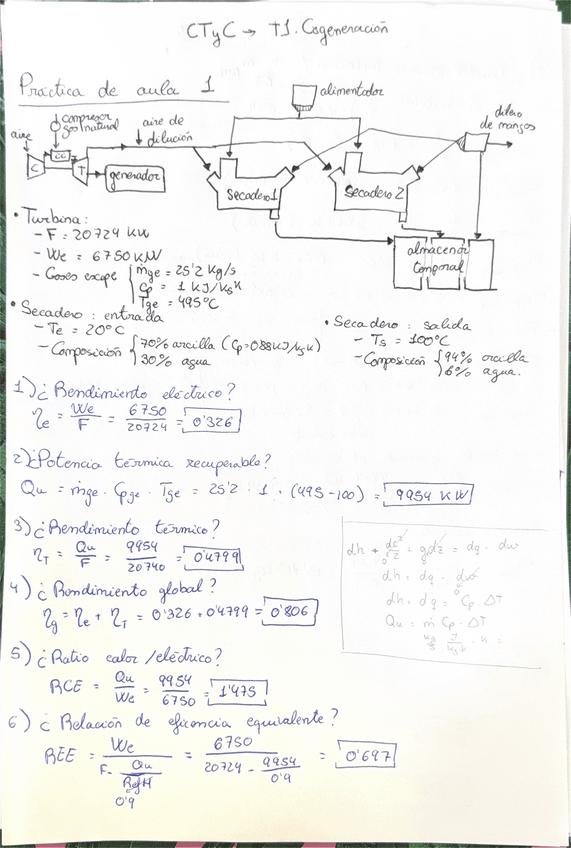 CTyC → T1. Cogeneración
Práctica de aula 1
alimentador
compresor
gas natural
aire de
dilución
aire
dilero
de mangos
C
CC
T
generador
Secadero 1
Secadero 2
almacenar
temporal
• Turbina:
- F = 20724 KW
- We = 6750 KW
- Gases escape { ṁge = 25'2 Kg/s
Cp = 1 KJ/KgK
Tge = 495°C
• Secadero: entrada
- Te = 20°C
- Composición { 70% arcilla (Cp=0'88KJ/KgK)
30% agua
• Secadero: salida
- Ts = 100°C
- Composición { 94% arcilla
6% agua.
1) ¿Rendimiento eléctrico?
ηe = We/F = 6750/20724 = 0'326
2) ¿Potencia térmica recuperable?
Qu = ṁge · Cpge · Tge = 25'2 · 1 · (495-100) = 9954 KW
3) ¿Rendimiento térmico?
ηT = Qu/F = 9954/20740 = 0'4799
4) ¿Rendimiento global?
ηg = ηe + ηT = 0'326 + 0'4799 = 0'806
5) ¿Ratio calor/eléctrico?
RCE = Qu/We = 9954/6750 = 1'475
6) ¿Relación de eficencia equivalente?
REE = We/(F - Qu/RefH) = 6750/(20724 - 9954/0'9) = 0'697
0'9
dh + dc²/2 + gdz = dq - dw
dh = dq - dw
dh = dq = Cp · ΔT
Qu = ṁ Cp · ΔT
Kg/s · J/KgK · K =